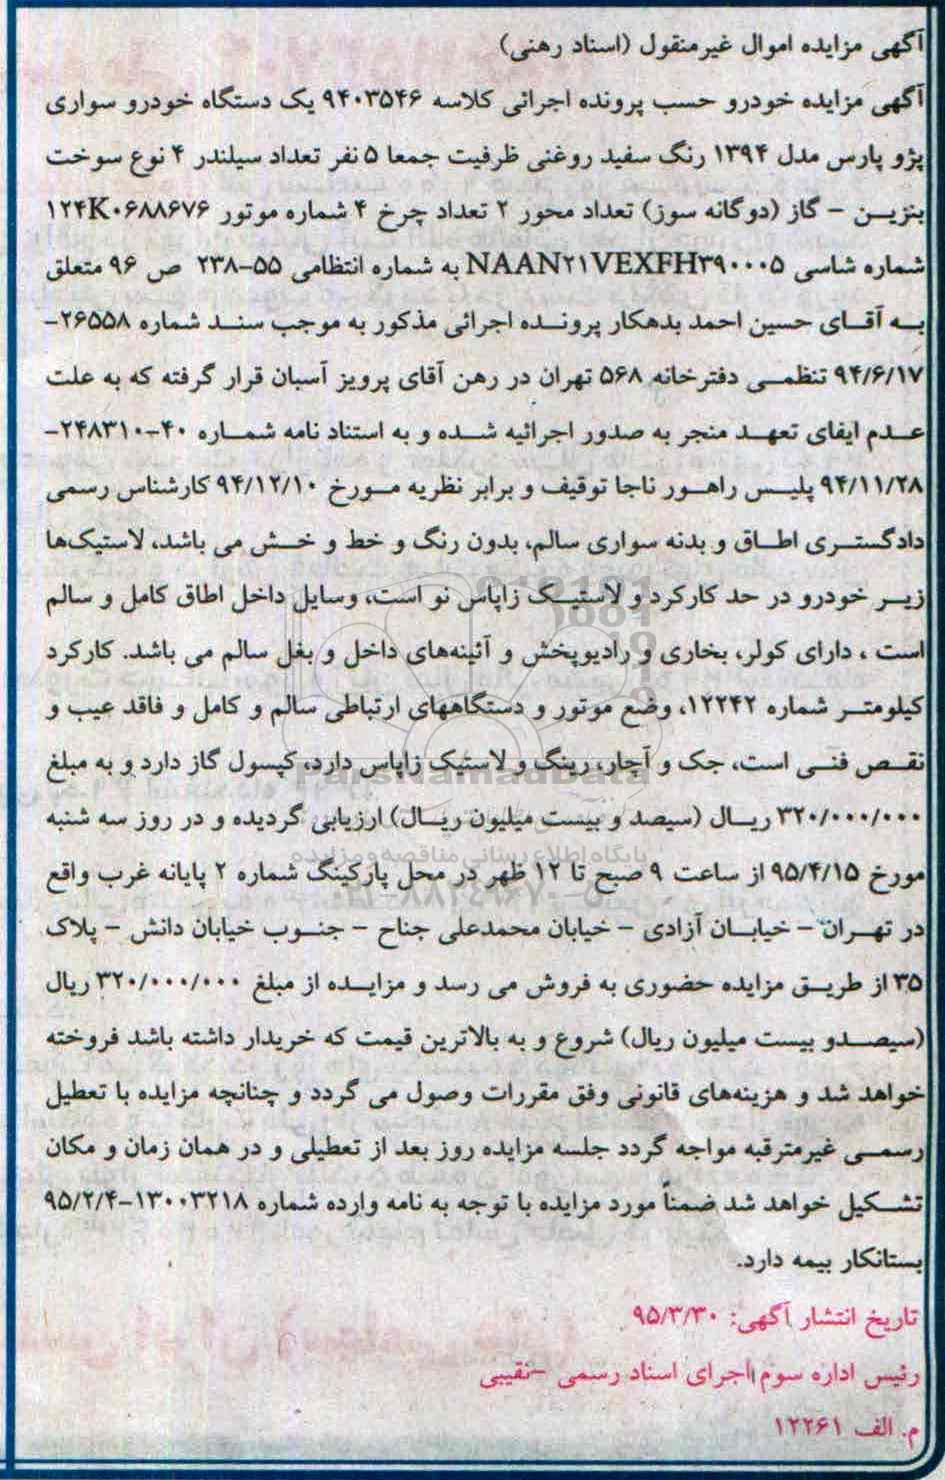 آگهی مزایده اموال غیرمنقول (اسناد رهنی)
آگهی مزایده خودرو حسب پرونده اجرائی کلاسه ۹۴۰۳۵۴۶ یک دستگاه خودرو سواری
پژو پارس مدل ۱۳۹۴ رنگ سفید روغنی ظرفیت جمعا ۵ نفر تعداد سیلندر ۴ نوع سوخت
بنزین - گاز (دوگانه سوز) تعداد محور ۲ تعداد چرخ ۴ شماره موتور ۱۲۴K۰۶۸۸۶۷۶
شماره شاسی NAAN۲۱VEXFH۳۹۰۰۰۵ به شماره انتظامی ۵۵-۲۳۸ ص ۹۶ متعلق
به آقای حسین احمد بدهکار پرونده اجرائی مذکور به موجب سند شماره ۲۶۵۵۸-
۹۴/۶/۱۷ تنظمی دفترخانه ۵۶۸ تهران در رهن آقای پرویز آسبان قرار گرفته که به علت
عدم ایفای تعهد منجر به صدور اجرائیه شده و به استناد نامه شماره ۴۰-۲۴۸۳۱۰-
۹۴/۱۱/۲۸ پلیس راهور ناجا توقیف و برابر نظریه مورخ ۹۴/۱۲/۱۰ کارشناس رسمی
دادگستری اطاق و بدنه سواری سالم، بدون رنگ و خط و خش می باشد، لاستیک‌ها
زیر خودرو در حد کارکرد و لاستیک زاپاس نو است، وسایل داخل اطاق کامل و سالم
است ، دارای کولر، بخاری و رادیوپخش و آئینه‌های داخل و بغل سالم می باشد. کارکرد
کیلومتر شماره ۱۲۲۴۲، وضع موتور و دستگاههای ارتباطی سالم و کامل و فاقد عیب و
نقص فنی است، جک و آچار، رینگ و لاستیک زاپاس دارد، کپسول گاز دارد و به مبلغ
۳۲۰/۰۰۰/۰۰۰ ریال (سیصد و بیست میلیون ریال) ارزیابی گردیده و در روز سه شنبه
مورخ ۹۵/۴/۱۵ از ساعت ۹ صبح تا ۱۲ ظهر در محل پارکینگ شماره ۲ پایانه غرب واقع
در تهران - خیابان آزادی - خیابان محمدعلی جناح - جنوب خیابان دانش - پلاک
۳۵ از طریق مزایده حضوری به فروش می رسد و مزایده از مبلغ ۳۲۰/۰۰۰/۰۰۰ ریال
(سیصدو بیست میلیون ریال) شروع و به بالاترین قیمت که خریدار داشته باشد فروخته
خواهد شد و هزینه‌های قانونی وفق مقررات وصول می گردد و چنانچه مزایده با تعطیل
رسمی غیرمترقبه مواجه گردد جلسه مزایده روز بعد از تعطیلی و در همان زمان و مکان
تشکیل خواهد شد ضمناً مورد مزایده با توجه به نامه وارده شماره ۱۳۰۰۳۲۱۸-۹۵/۲/۴
بستانکار بیمه دارد.
تاریخ انتشار آگهی: ۹۵/۳/۳۰
رئیس اداره سوم اجرای اسناد رسمی -نقیبی
م. الف ۱۲۲۶۱
ParsNamadData
پایگاه اطلاع رسانی مناقصه و مزایده